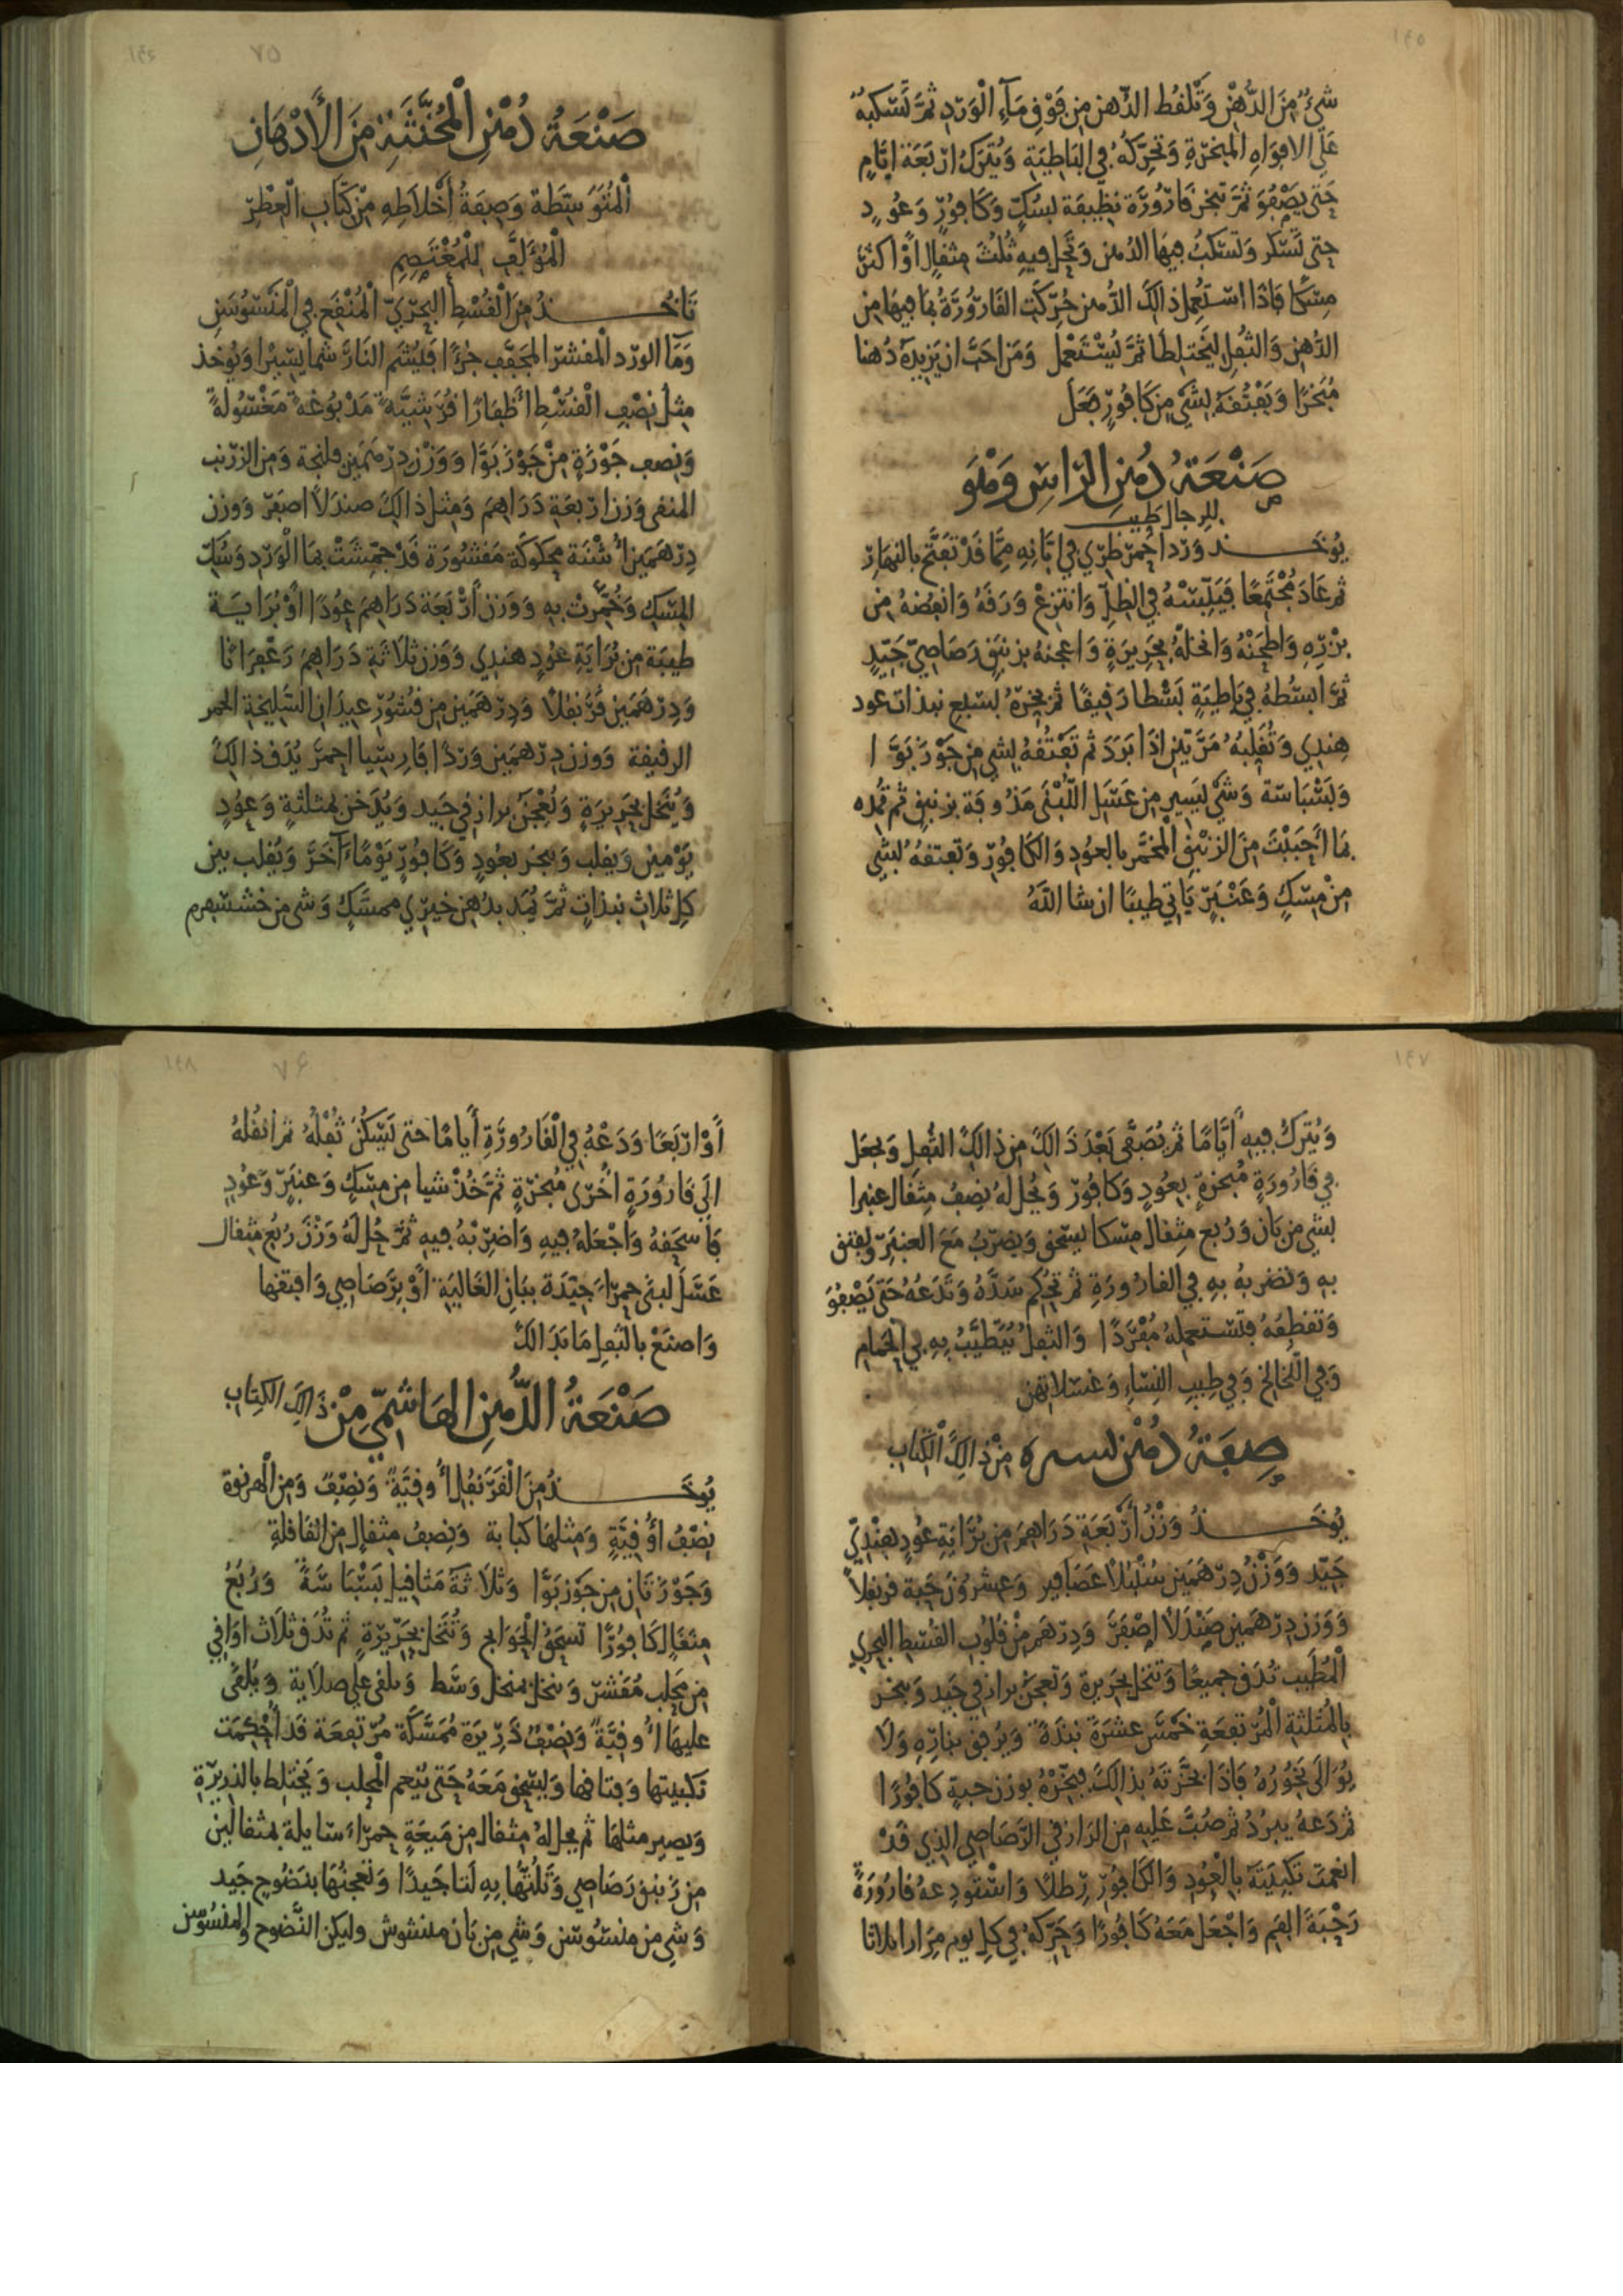 شيءٌ مِنَ الدُّهْنِ وَتَلْقُط الدّهن مِن فَوْقِ مَآءِ الْوَرْدِ ثمَّ تَسْكبهُ
عَلَى الافوَاهِ المبَخرَةِ وَتحَرِّكهُ في البَاطيَةِ وَيُترَكُ ارْبَعَة ايَّامٍ
حَتى يَصْفُوَ ثمَّ تبخر قارُورَة نظيفَة بسُكٍّ وَكَافُورٍ وَعُودٍ
حتى تَسْكر وَتَسْكبُ فيهَا الدُهن وَتحَل فيهِ ثُلُثَ مثقالٍ اوْ اكثَرَ
مِسْكا فَاذا اسْتُعمِل ذالكَ الدُّهن حُرّكَت القَارُورَةُ بمَا فيهَا مِن
الدُّهن وَالثُفلِ ليَختَلِطَا ثمَّ يُسْتَعْمَل وَمَن احَبَّ ان يَزيدَهُ دُهنا
مُبَخرًا وَيَفتُقَهُ بشَيْ مِن كَافُورٍ فعَلَ
صَنْعَةُ دُهْنِ الرّاسِ وَهْوَ
للرِجال طَيِب
يُوخَـــذ وَرْدا احمر طَرِّي في ابَّانِهِ مِمَّا قَدْ تَفتَّحَ بالنهَارِ
ثم عَادَ مُجْتَمِعًا فَيَبِّسْهُ في الظلِّ وَانتزعْ وَرَقَهُ وَانفضْهُ مِن
بزْرِهِ وَاطحَنْهُ وَانخلهُ بحَرِيرَةٍ وَاعجنهُ بزنبَقٍ رَصَاصِيّ جَيّدٍ
ثمَّ ابسُطهُ في بَاطِيَةٍ بَسْطا رَقيقًا ثم بخرْهُ بسَبعِ نبذات عود
هِندِي وَتُقَلِبهُ مَرَّتَيْنِ اذَا بَرَدَ ثم تَفتُقهُ بشي مِن جَوْزبَوَّا
وَبَسْبَاسَة وَشَيْ يَسِيرٍ مِن عَسَلِ اللُبْنَى مَدُوفة بزنبَقٍ ثم تمُده
بمَا أحْبَبْتَ مِنَ الزنْبَقِ المُخمَّر بالعُودِ وَالكَافُورِ وَتَفتقهُ بشَيْ
مِنْ مِسْكٍ وَعَنْبَرٍ يَاتي طيبًا ان شا اللهُ
صَنْعَةُ دُهْنِ الْمُخَنَّثَةِ مِنَ الأَدْهَانِ
الْمُتَوَسِّطَةِ وَصِفَةُ أَخْلاَطِهِ مِنْ كتَابِ العِطْرِ
الْمُؤَلَّفِ لِلْمُعْتَصِمِ
تَاخُـــذُ مِنَ الْقُسْطِ البَحْريّ الْمُنْقَعِ في الْمَيْسُوسَنِ
وَمَآ الورْد الْمقشر المجَفّف جُزءًا فَليُشَم النَارَ شما يَسِيْرا وَيُوخذ
مِثلُ نِصْفِ الْقُسْطِ أظفَارًا قُرَشِيَّةً مَدْبُوغَةً مَغْسُولَةً
وَنصف جَوْزَةٍ مِنْ جَوْزبَوَّا وَوَزْن درْهَمَين فلنجة وَمِن الزرْنب
المنقى وَزن ارْبَعَةِ دَرَاهِمَ وَمِثل ذالِكَ صندَلاً اصفرَ وَوزن
دِرْهَمَينِ أشْنَة محكُوكَة مَقشُورَة قَدْ جمّشَتْ بمَا الْوَرْدِ وَسُكّ
المِسْكِ وَخُمِّرتْ بهِ وَوَزن أرْبَعَة دَرَاهِمَ عُودًا اوْ بُرَايَة
طيبَة مِن بُرَايَةِ عُودٍ هِندِي وَوَزن ثَلاَثَةِ دَرَاهِمَ زَعْفَرَانًا
وَدِرْهَمَين قَرَنفُلا وَدِرْهَمَين مِن قشُورِ عيدَانِ السَّليخةِ الحمر
الرقيقة وَوزن دِرْهمَين وَرْدًا فَارِسِيا احمرَ يُدَق ذالِكَ
وَيُنخل بحَرِيرَةٍ وَيُعْجَن برازقي جَيد وَيُدَخن بمثلثةٍ وَعُودٍ
يَوْمَين وَيقلب وَيبخر بعُودٍ وَكَافُورٍ يَوْمًا آخَرَ وَيُقلب بين
كلِ ثلاثِ نبذاتٍ ثمَّ يُمَد بدُهن خيرِي ممسَّكٍ وَشي من خشسبرم
وَيُترَكُ فيهِ أيَّامًا ثم يُصَفَّى بَعْدَ ذَالِكَ مِن ذالِكَ الثُفلِ وَيجعَل
في قَارُورَةٍ مُبَخرَةٍ بِعُودٍ وَكافُورٍ وَيُحل لهُ نِصْفُ مِثقال عنبرا
بشي مِن بَان وَرُبع مِثقال مِسْكا يسحَق وَيضرَبُ مَعَ العنبرِ وَيفتق
بهِ وَتضربهُ بهِ في القارُورَةِ ثم تحْكِم سَدَّهُ وَتَدَعهُ حَتى يَصْفُوَ
وَتقطِفهُ فتَسْتعملهُ مُفْرَدًا وَالثفلُ يُتَطيَّبُ بهِ في الحمامِ
وَفي اللخَالخ وَفي طِيبِ النِسَاءِ وَغسْلاتهن
صِفَةُ دُهْنِ نسره مِنْ ذَالِكَ الْكِتَابِ
يُوخَـــذُ وَزْنُ أرْبَعَةِ دَرَاهِمَ مِن بُرَايَةِ عُودٍ هِنْدِيِّ
جَيّد وَوَزْنُ دِرْهَمَين سُنْبُلاً عَصَافير وَعشرُونَ حَبة قرنفلاً
وَوَزن دِرْهَمين صَنْدَلاً اصْفَرَ وَدِرْهَم مِنْ قُلُوبِ القُسْطِ البحري
المُطَيب تدَق جميعًا وَتنخل بحَرِيرة وَتعجَن برازقي جَيد وَيبخر
بالمُثَلثةِ الْمُرْتَفعَةِ خَمْسَ عشرَةَ نبذَةً وَيُرفَق بنارِهِ وَلَا
يُوَالَى بَخُورُهُ فَاذَا بخَّرْتَهُ بذالِكَ فبَخّرْهُ بوَزن حَبةٍ كافُورًا
ثم دَعهُ يبردُ ثم صُبَّ عَليهِ مِن الرازقي الرَّصَاصِي الذِي قَدْ
انعمتَ تكبيتَهُ بالْعُودِ وَالكافُورِ رِطلاً وَاسْتَودِعهُ قارُورَةً
رَحْبَةَ الفَمِ وَاجْعَل مَعَهُ كَافُورًا وَحَرّكهُ في كلِ يوم مِرَارا ثلاثا
أَوْ ارْبَعًا وَدَعْهُ في الْقَارُورَةِ أيامًا حَتى يَسْكُنَ ثُفْلُهُ ثم انقُلهُ
الَى قَارُورَةٍ اُخْرَى مُبَخرَةٍ ثمَّ خُذْ شيا مِن مِسْكٍ وَعنبَرٍ وَعُودٍ
فَاسحَقهُ وَاجْعَلهُ فيهِ وَاضرِبْهُ فيهِ ثمَّ حُل لهُ وَزْنَ رُبع مِثقال
عَسَل لبنَى حمرَاءَ جَيّدَة ببَانِ الغَاليَةِ أوْ برَصَاصِي وَافتقهَا
وَاصنَعْ بالثفلِ مَا بَدَالكَ
صَنْعَةُ الدُّهْنِ الهَاشِمِّي مِنْ ذَالِكَ الكِتَابِ
يُوخَـــذُ مِنَ الْقَرَنفُلِ أُوقيَّةً وَنِصْفُ وَمِن الْهرنوة
نِصْفُ أوُقيَّةٍ وَمِثلهَا كبَابة وَنِصفُ مِثقالٍ مِن القَاقلةِ
وَجَوْزَتَانِ مِن جَوْزبَوَّا وَثلاَثَةَ مَثاقِيل بَسْبَاسَةً وَرُبعُ
مِثقَالٍ كَافورًا تسحَقُ الْحَوَايج وَتُنخل بحَرِيرَةٍ ثم تُدَق ثلاث اوَاقي
مِن محلب مُقَشر وَينخل بمنخل وَسَط وَيلقى على صلاَية وَيُلقَى
عليهَا أُوقيَّةً وَنِصْفُ ذَرِيرَة مُمَسَّكَة مُرْتفعَة قَد أُحْكِمَت
تكبيتها وَفتَاقها وَيسحَق مَعَهُ حَتى يَنعم المَحلب وَيَختلِط بالذرِيْرَةِ
وَيصير مثلهَا ثم يحل لهُ مِثقال مِن مَيعَةٍ حمرَاءَ سَايلة بمثقالين
مِن زَنبق رَصَاصي وَتَلُتّها بِهِ لَتا جَيدًا وَتعجنُهَا بنَضُوحٍ جَيد
وَشي مِن ميسُوسن وَشي مِن بَان منشوش وليكن النَضُوح والميسُوسن